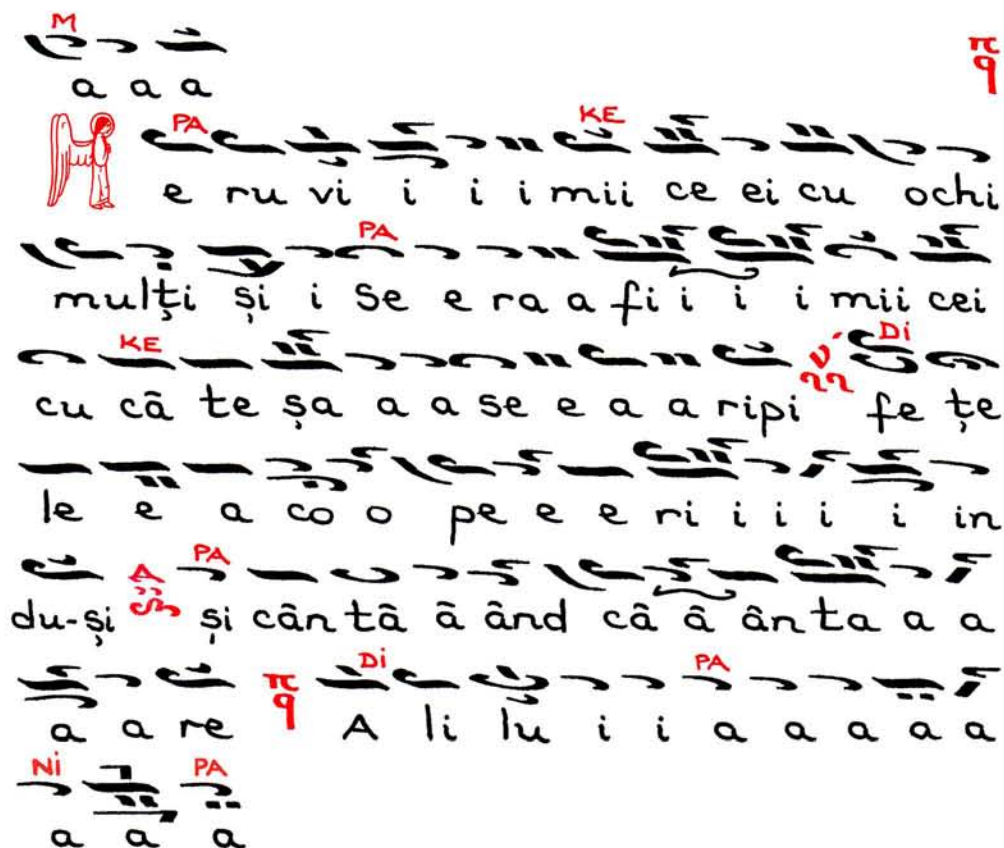 M
π
q
a a a
PA KE
e ru vi i i i mii ce ei cu ochi
PA
mulţi şi i Se e ra a fi i i i mii cei
KE Di
cu câ te şa a a se e a a ripi fe ţe
le e a co o pe e e ri i i i i in
PA
du-şi şi cân tâ â ând câ â ân ta a a
Di PA
a a re π q A li lu i i a a a a a
Ni PA
a a a